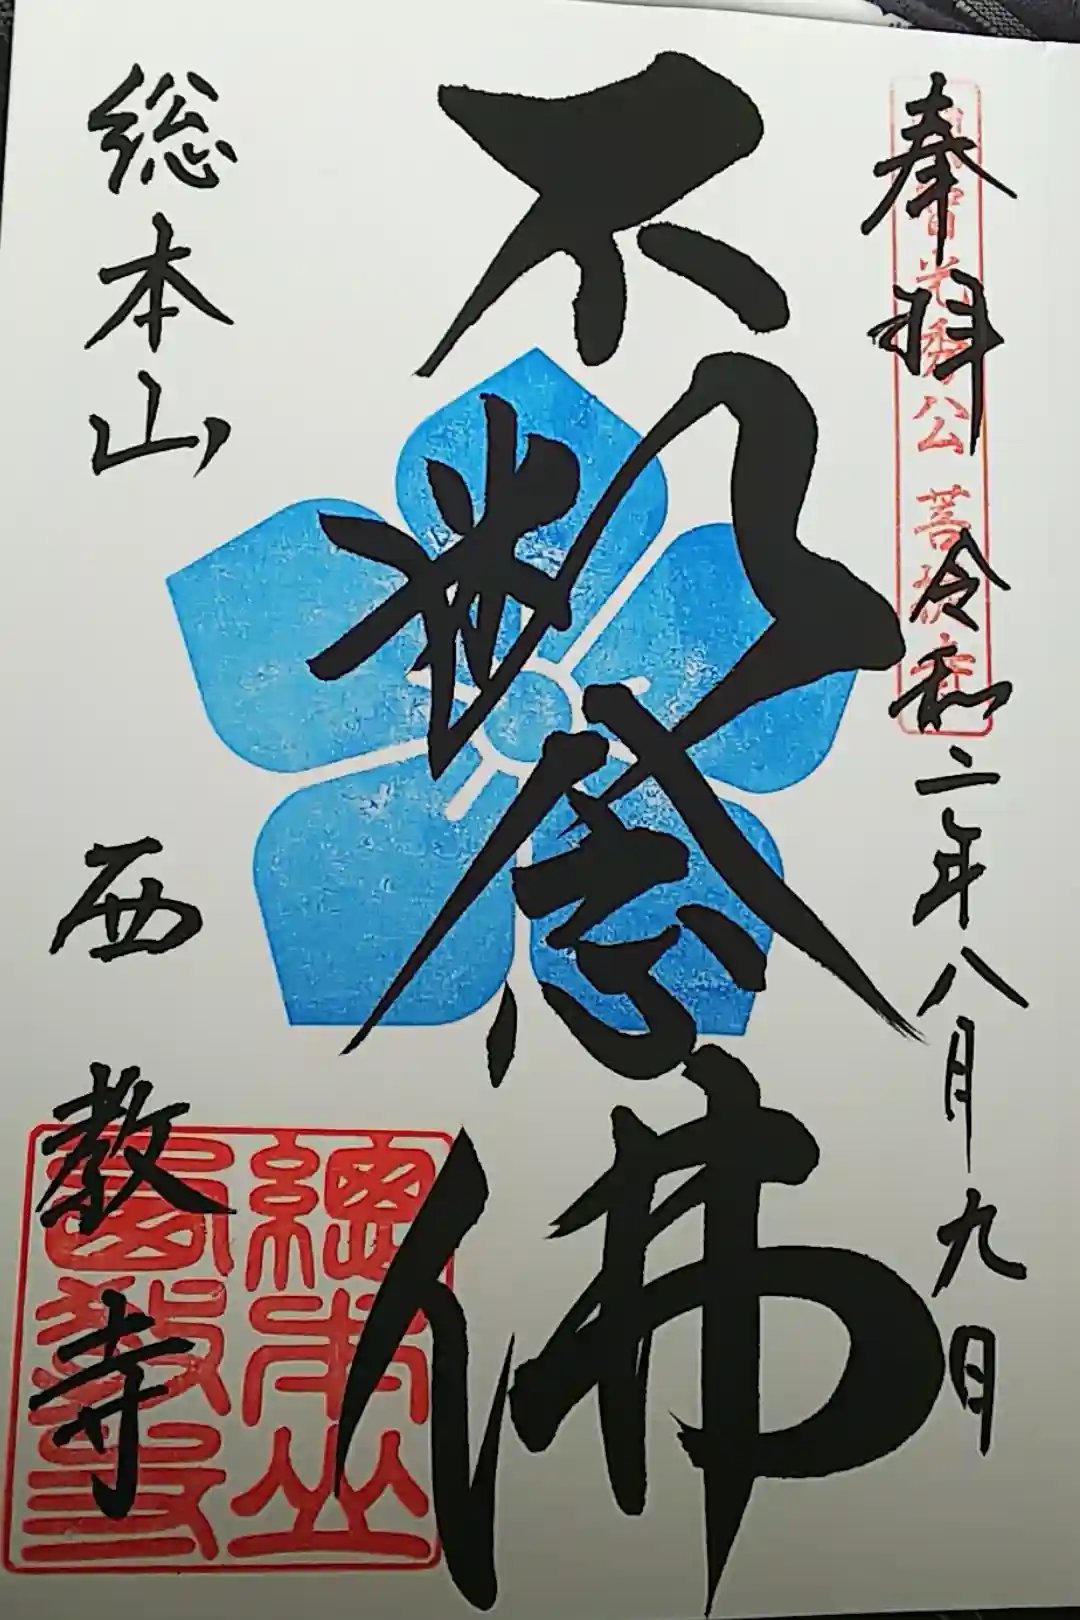 奉拝 令和二年八月九日
明智光秀公 菩提寺
不断念佛
総本山 西教寺
總本山
西教寺